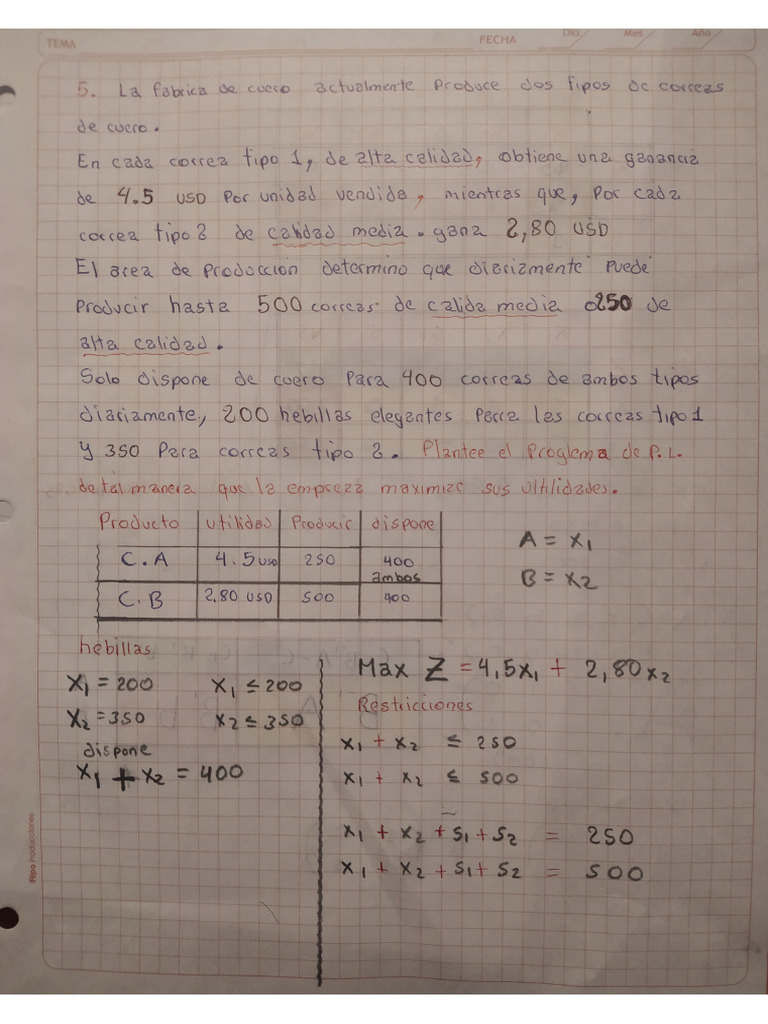 TEMA
FECHA
Dia
Mes
Año
5. La fabrica de cuero actualmente Produce dos tipos de correas
de cuero.
En cada correa tipo 1, de alta calidad, obtiene una ganancia
de 4.5 USD Por unidad vendida, mientras que, Por cada
correa tipo 2 de calidad media. gana 2,80 USD
El area de Producción determino que diariamente Puede
Producir hasta 500 correas de calida media o 250 de
alta calidad.
Solo dispone de cuero Para 400 correas de ambos tipos
diariamente, 200 hebillas elegantes Para las correas tipo 1
y 350 Para correas tipo 2. Plantee el Proglema de P.L.
de tal manera que la empreza maximize sus ultilidades.
Producto utilidad Producir dispone
C.A 4.5 USD 250 400
ambos
C.B 2,80 USD 500 400
A = x1
B = x2
hebillas
x1 = 200 x1 ≤ 200
x2 = 350 x2 ≤ 350
dispone
x1 + x2 = 400
Max Z = 4,5x1 + 2,80x2
Restricciones
x1 + x2 ≤ 250
x1 + x2 ≤ 500
x1 + x2 + s1 + s2 = 250
x1 + x2 + s1 + s2 = 500
Flipo Producciones